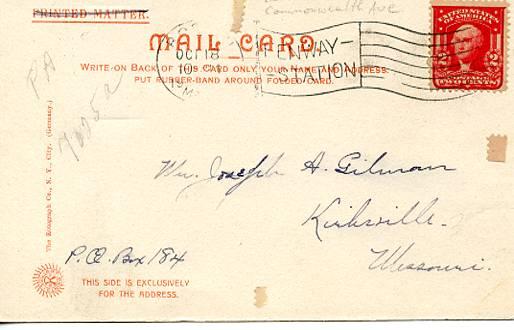 Commonwealth Ave
PRINTED MATTER.
MAIL CARD.
OCT 18
FENWAY-
STATION
WRITE ON BACK OF THIS CARD ONLY YOUR NAME AND ADDRESS.
PUT RUBBER-BAND AROUND FOLDED CARD.
UNITED STATES
OF AMERICA
2 2
PA
The Rotograph Co., N. Y., City. (Germany.)
Wm. Joseph A. Gilman
Kirksville.
Missouri.
P.O. Box 184
THIS SIDE IS EXCLUSIVELY
FOR THE ADDRESS.